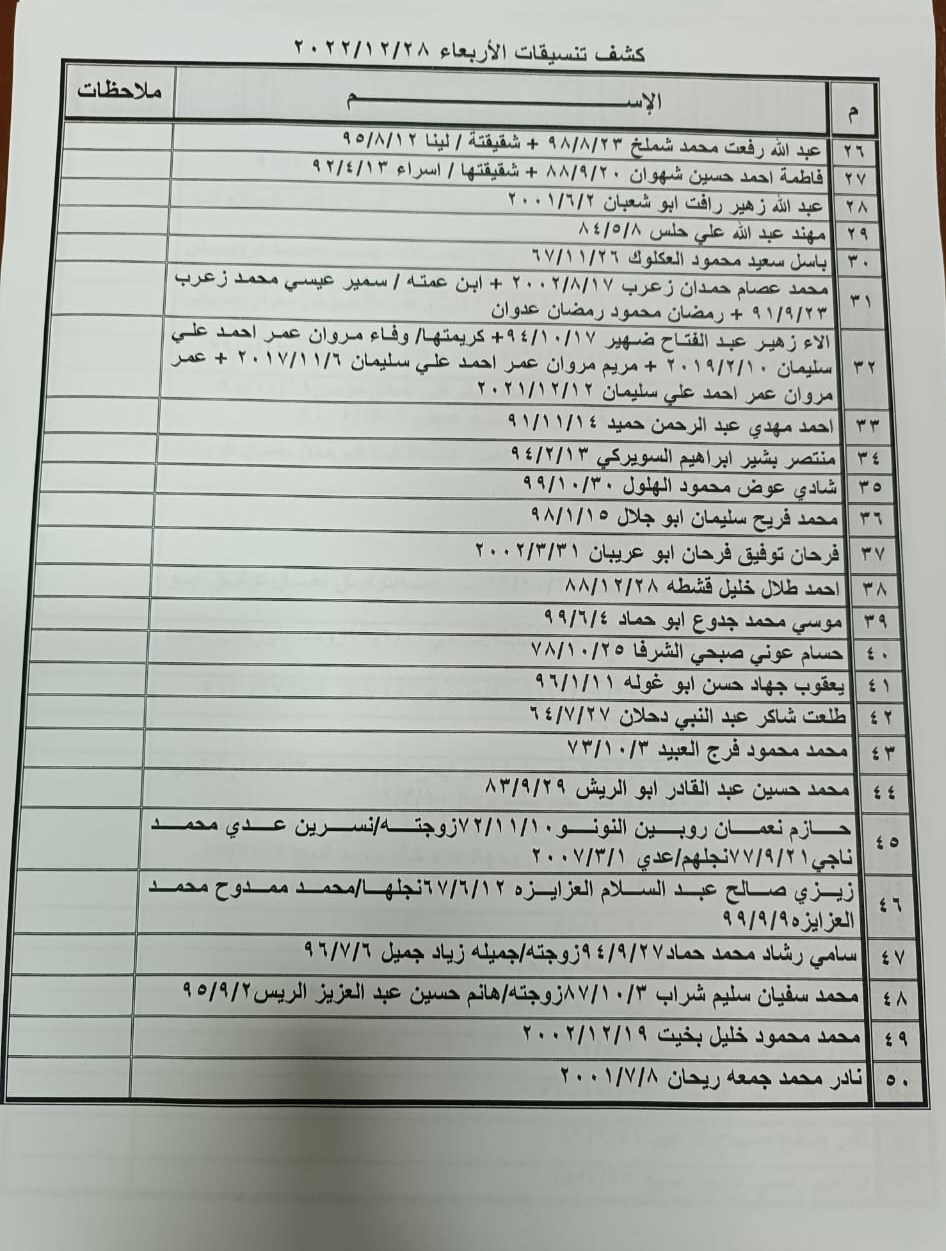 كشف تنسيقات الأربعاء ٢٠٢٢/١٢/٢٨
م الإســـــم ملاحظات
٢٦ عبد الله رفعت محمد شملخ ٩٨/٨/٢٣ + شقيقتة / لينا ٩٥/٨/١٢
٢٧ فاطمة احمد حسين شهوان ٨٨/٩/٢٠ + شقيقتها / اسراء ٩٢/٤/١٣
٢٨ عبد الله زهير رافت ابو شعبان ٢٠٠١/٦/٢
٢٩ مهند عبد الله علي حلس ٨٤/٥/٨
٣٠ باسل سعيد محمود العكلوك ٦٧/١١/٢٦
٣١ محمد عصام حمدان زعرب ٢٠٠٢/٨/١٧ + ابن عمته / سمير عيسي محمد زعرب
٩١/٩/٢٣ + رمضان محمود رمضان عدوان
٣٢ الاء زهير عبد الفتاح ضهير ٩٤/١٠/١٧+ كريمتها/ وفاء مروان عمر احمد علي
سليمان ٢٠١٩/٢/١٠ + مريم مروان عمر احمد علي سليمان ٢٠١٧/١١/٦ + عمر
مروان عمر احمد علي سليمان ٢٠٢١/١٢/١٢
٣٣ احمد مهدي عبد الرحمن حميد ٩١/١١/١٤
٣٤ منتصر بشير ابراهيم السويركي ٩٤/٢/١٣
٣٥ شادي عوض محمود الهلول ٩٩/١٠/٣٠
٣٦ محمد فريح سليمان ابو جلال ٩٨/١/١٥
٣٧ فرحان توفيق فرحان ابو عريبان ٢٠٠٢/٣/٣١
٣٨ احمد طلال خليل قشطه ٨٨/١٢/٢٨
٣٩ موسي محمد جدوع ابو حماد ٩٩/٦/٤
٤٠ حسام عوني صبحي الشرفا ٧٨/١٠/٢٥
٤١ يعقوب جهاد حسن ابو غوله ٩٦/١/١١
٤٢ طلعت شاكر عبد النبي دحلان ٦٤/٧/٢٧
٤٣ محمد محمود فرج العبيد ٧٣/١٠/٣
٤٤ محمد حسين عبد القادر ابو الريش ٨٣/٩/٢٩
٤٥ حازم نعمان روبين النونو ٧٢/١١/١٠زوجته/نسرين عدي محمد
ناجي٧٧/٩/٢١نجلهم/عدي ٢٠٠٧/٣/١
٤٦ زيزي صالح عبد السلام العزايزه ٦٧/٦/١٢نجلها/محمد ممدوح محمد
العزايزه٩٩/٩/٩
٤٧ سامي رشاد محمد حماد٩٤/٩/٢٧زوجته/جميله زياد جميل ٩٦/٧/٦
٤٨ محمد سفيان سليم شراب ٨٧/١٠/٣زوجته/هانم حسين عبد العزيز الريس٩٥/٩/٢
٤٩ محمد محمود خليل بخيت ٢٠٠٢/١٢/١٩
٥٠ نادر محمد جمعه ريحان ٢٠٠١/٧/٨